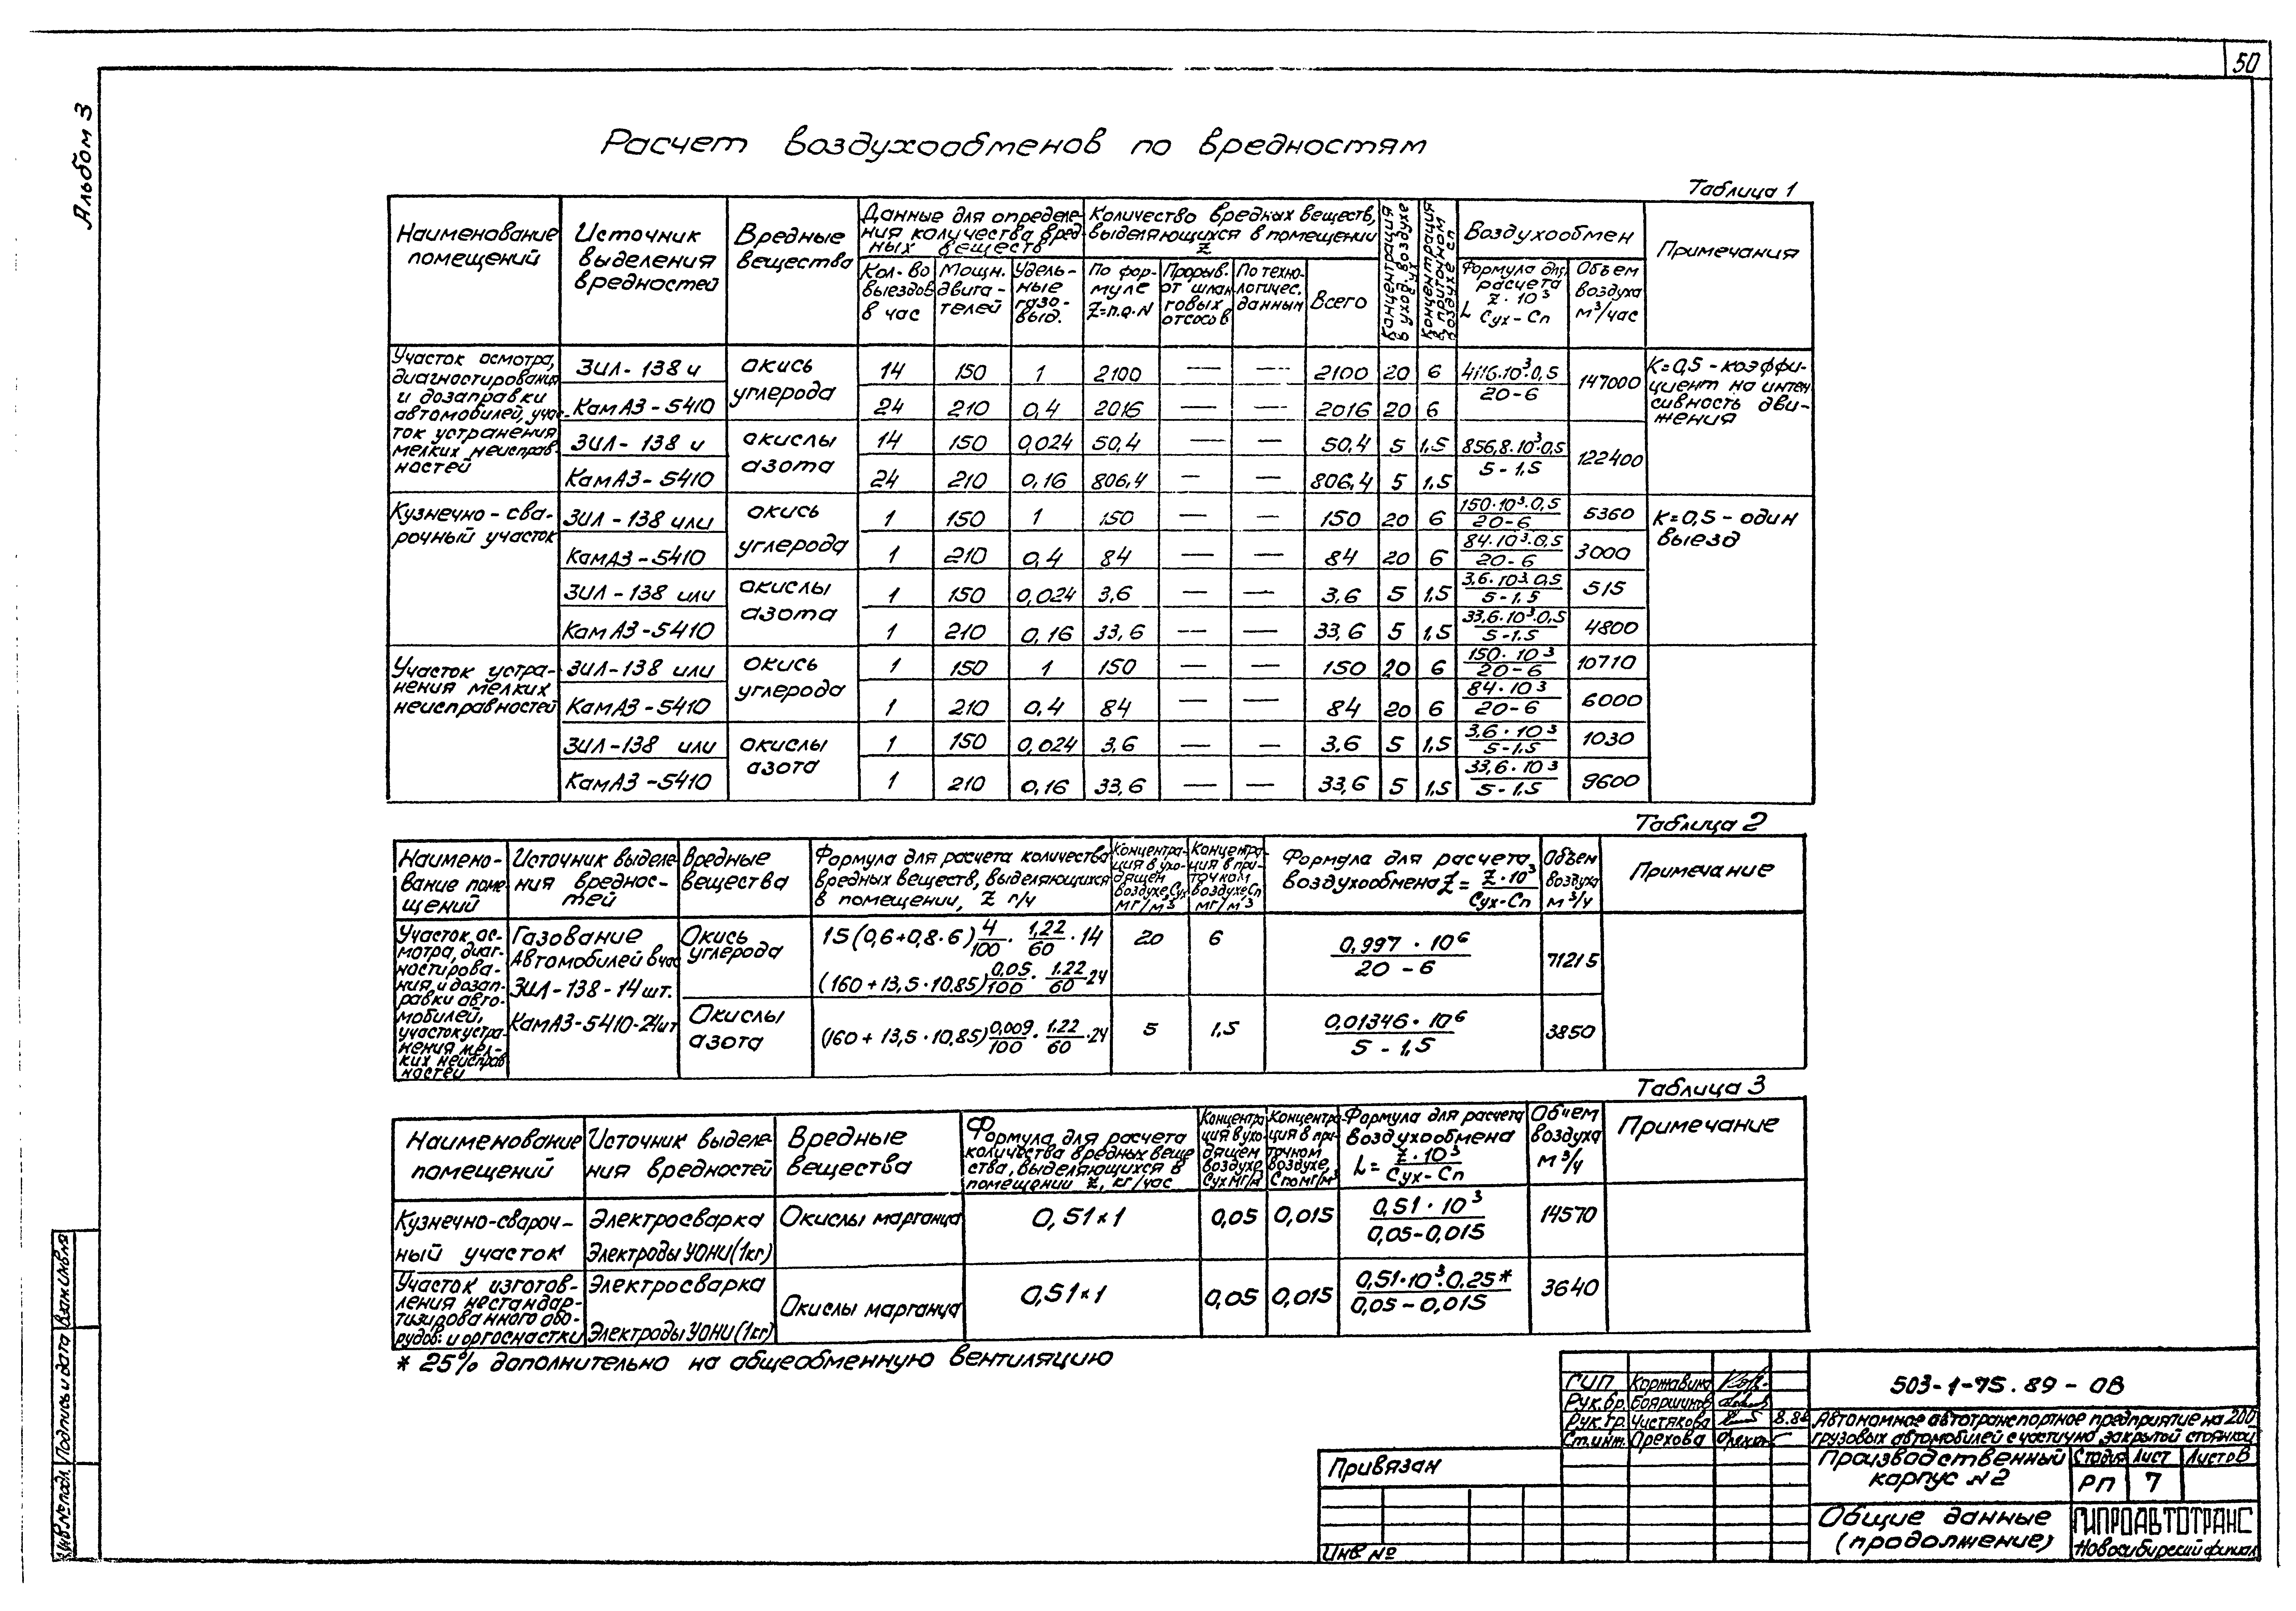 50
Альбом 3
Расчет воздухообменов по вредностям
Таблица 1
Наименование помещений
Источник выделения вредностей
Вредные вещества
Данные для определе-
ния количества вред-
ных веществ
Кол-во выездов в час
Мощн. двига-телей
Удель-ные газо-выд.
Количество вредных веществ,
выделяющихся в помещении
Z
По фор-муле Z=n.q.N
Прорыв. от шлан говых отсосов
По техно-логичес. данным
Всего
Концентрация в уход. воздухе Сух
Концентрация в приточном воздухе Сп
Воздухообмен
Формула для расчета L Z · 10³ / Сух - Сп
Объем воздуха м³/час
Примечания
Участок осмотра,
диагностирования
и дозаправки
автомобилей, учас-
ток устранения
мелких неисправ-
ностей
ЗИЛ-138 и окись углерода 14 150 1 2100 — — 2100 20 6 4116·10³·0,5 / 20-6 147000
КамАЗ-5410 24 210 0,4 2016 — — 2016 20 6
ЗИЛ-138 и окислы азота 14 150 0,024 50,4 — — 50,4 5 1,5 856,8·10³·0,5 / 5-1,5 122400
КамАЗ-5410 24 210 0,16 806,4 — — 806,4 5 1,5
К=0,5 - коэффи-
циент на интен
сивность дви-
жения
Кузнечно-сва-
рочный участок
ЗИЛ-138 или окись углерода 1 150 1 150 — — 150 20 6 150·10³·0,5 / 20-6 5360
КамАЗ-5410 1 210 0,4 84 — — 84 20 6 84·10³·0,5 / 20-6 3000
ЗИЛ-138 или окислы азота 1 150 0,024 3,6 — — 3,6 5 1,5 3,6·10³·0,5 / 5-1,5 515
КамАЗ-5410 1 210 0,16 33,6 — — 33,6 5 1,5 33,6·10³·0,5 / 5-1,5 4800
К=0,5 - один
выезд
Участок устра-
нения мелких
неисправностей
ЗИЛ-138 или окись углерода 1 150 1 150 — — 150 20 6 150·10³ / 20-6 10710
КамАЗ-5410 1 210 0,4 84 — — 84 20 6 84·10³ / 20-6 6000
ЗИЛ-138 или окислы азота 1 150 0,024 3,6 — — 3,6 5 1,5 3,6·10³ / 5-1,5 1030
КамАЗ-5410 1 210 0,16 33,6 — — 33,6 5 1,5 33,6·10³ / 5-1,5 9600
Таблица 2
Наимено-вание поме-щений
Источник выделе-ния вреднос-тей
Вредные вещества
Формула для расчета количества
вредных веществ, выделяющихся
в помещении, Z г/ч
Концентра-ция в ухо-дящем воздухе, Сух мг/м³
Концентра-ция в при-точном воздухе Сп мг/м³
Формула для расчета
воздухообмена Z = Z·10³ / Сух-Сп
Объем воздуха м³/ч
Примечание
Участок ос-
мотра, диаг-
ностирова-
ния и дозап-
равки авто-
мобилей,
участок устра-
нения мел-
ких неисправ
ностей
Газование
Автомобилей в час
ЗИЛ-138-14 шт.
КамАЗ-5410-24шт
Окись углерода
15(0,6+0,8·6) 4/100 · 1,22/60 · 14
(160+13,5·10,85) 0,05/100 · 1,22/60 ·24
20 6 0,997·10⁶ / 20-6 71215
Окислы азота
(160+13,5·10,85) 0,009/100 · 1.22/60 ·24
5 1,5 0,01346·10⁶ / 5-1,5 3850
Таблица 3
Наименование помещений
Источник выделе-ния вредностей
Вредные вещества
Формула для расчета
количества вредных веще
ства, выделяющихся в
помещении Z, кг/час
Концентра ция в ухо-дящем воздухе Сух мг/м
Концентра ция в при-точном воздухе, Сп мг/м³
Формула для расчета
воздухообмена
L = Z·10³ / Сух-Сп
Объем воздуха м³/ч
Примечание
Кузнечно-свароч-
ный участок
Электросварка
Электроды УОНИ(1кг)
Окислы марганца 0,51×1 0,05 0,015 0,51·10³ / 0,05-0,015 14570
Участок изготов-
ления нестандар-
тизированного обо-
рудов. и оргоснастки
Электросварка
Электроды УОНИ(1кг)
Окислы марганца 0,51×1 0,05 0,015 0,51·10³·0,25* / 0,05-0,015 3640
* 25% дополнительно на общеобменную вентиляцию
ГИП Коржавина
Рук.бр. Бояршинов
Рук.гр. Чистякова
Ст.инж. Орехова
503-1-75.89-ОВ
Автономное автотранспортное предприятие на 200
грузовых автомобилей с частично закрытой стоянкой
Производственный
корпус №2
Стадия Лист Листов
РП 7
Общие данные
(продолжение)
ГИПРОАВТОТРАНС
Новосибирский филиал
Привязан
Инв №
Инв № подл. Подпись и дата Взам.инв.№